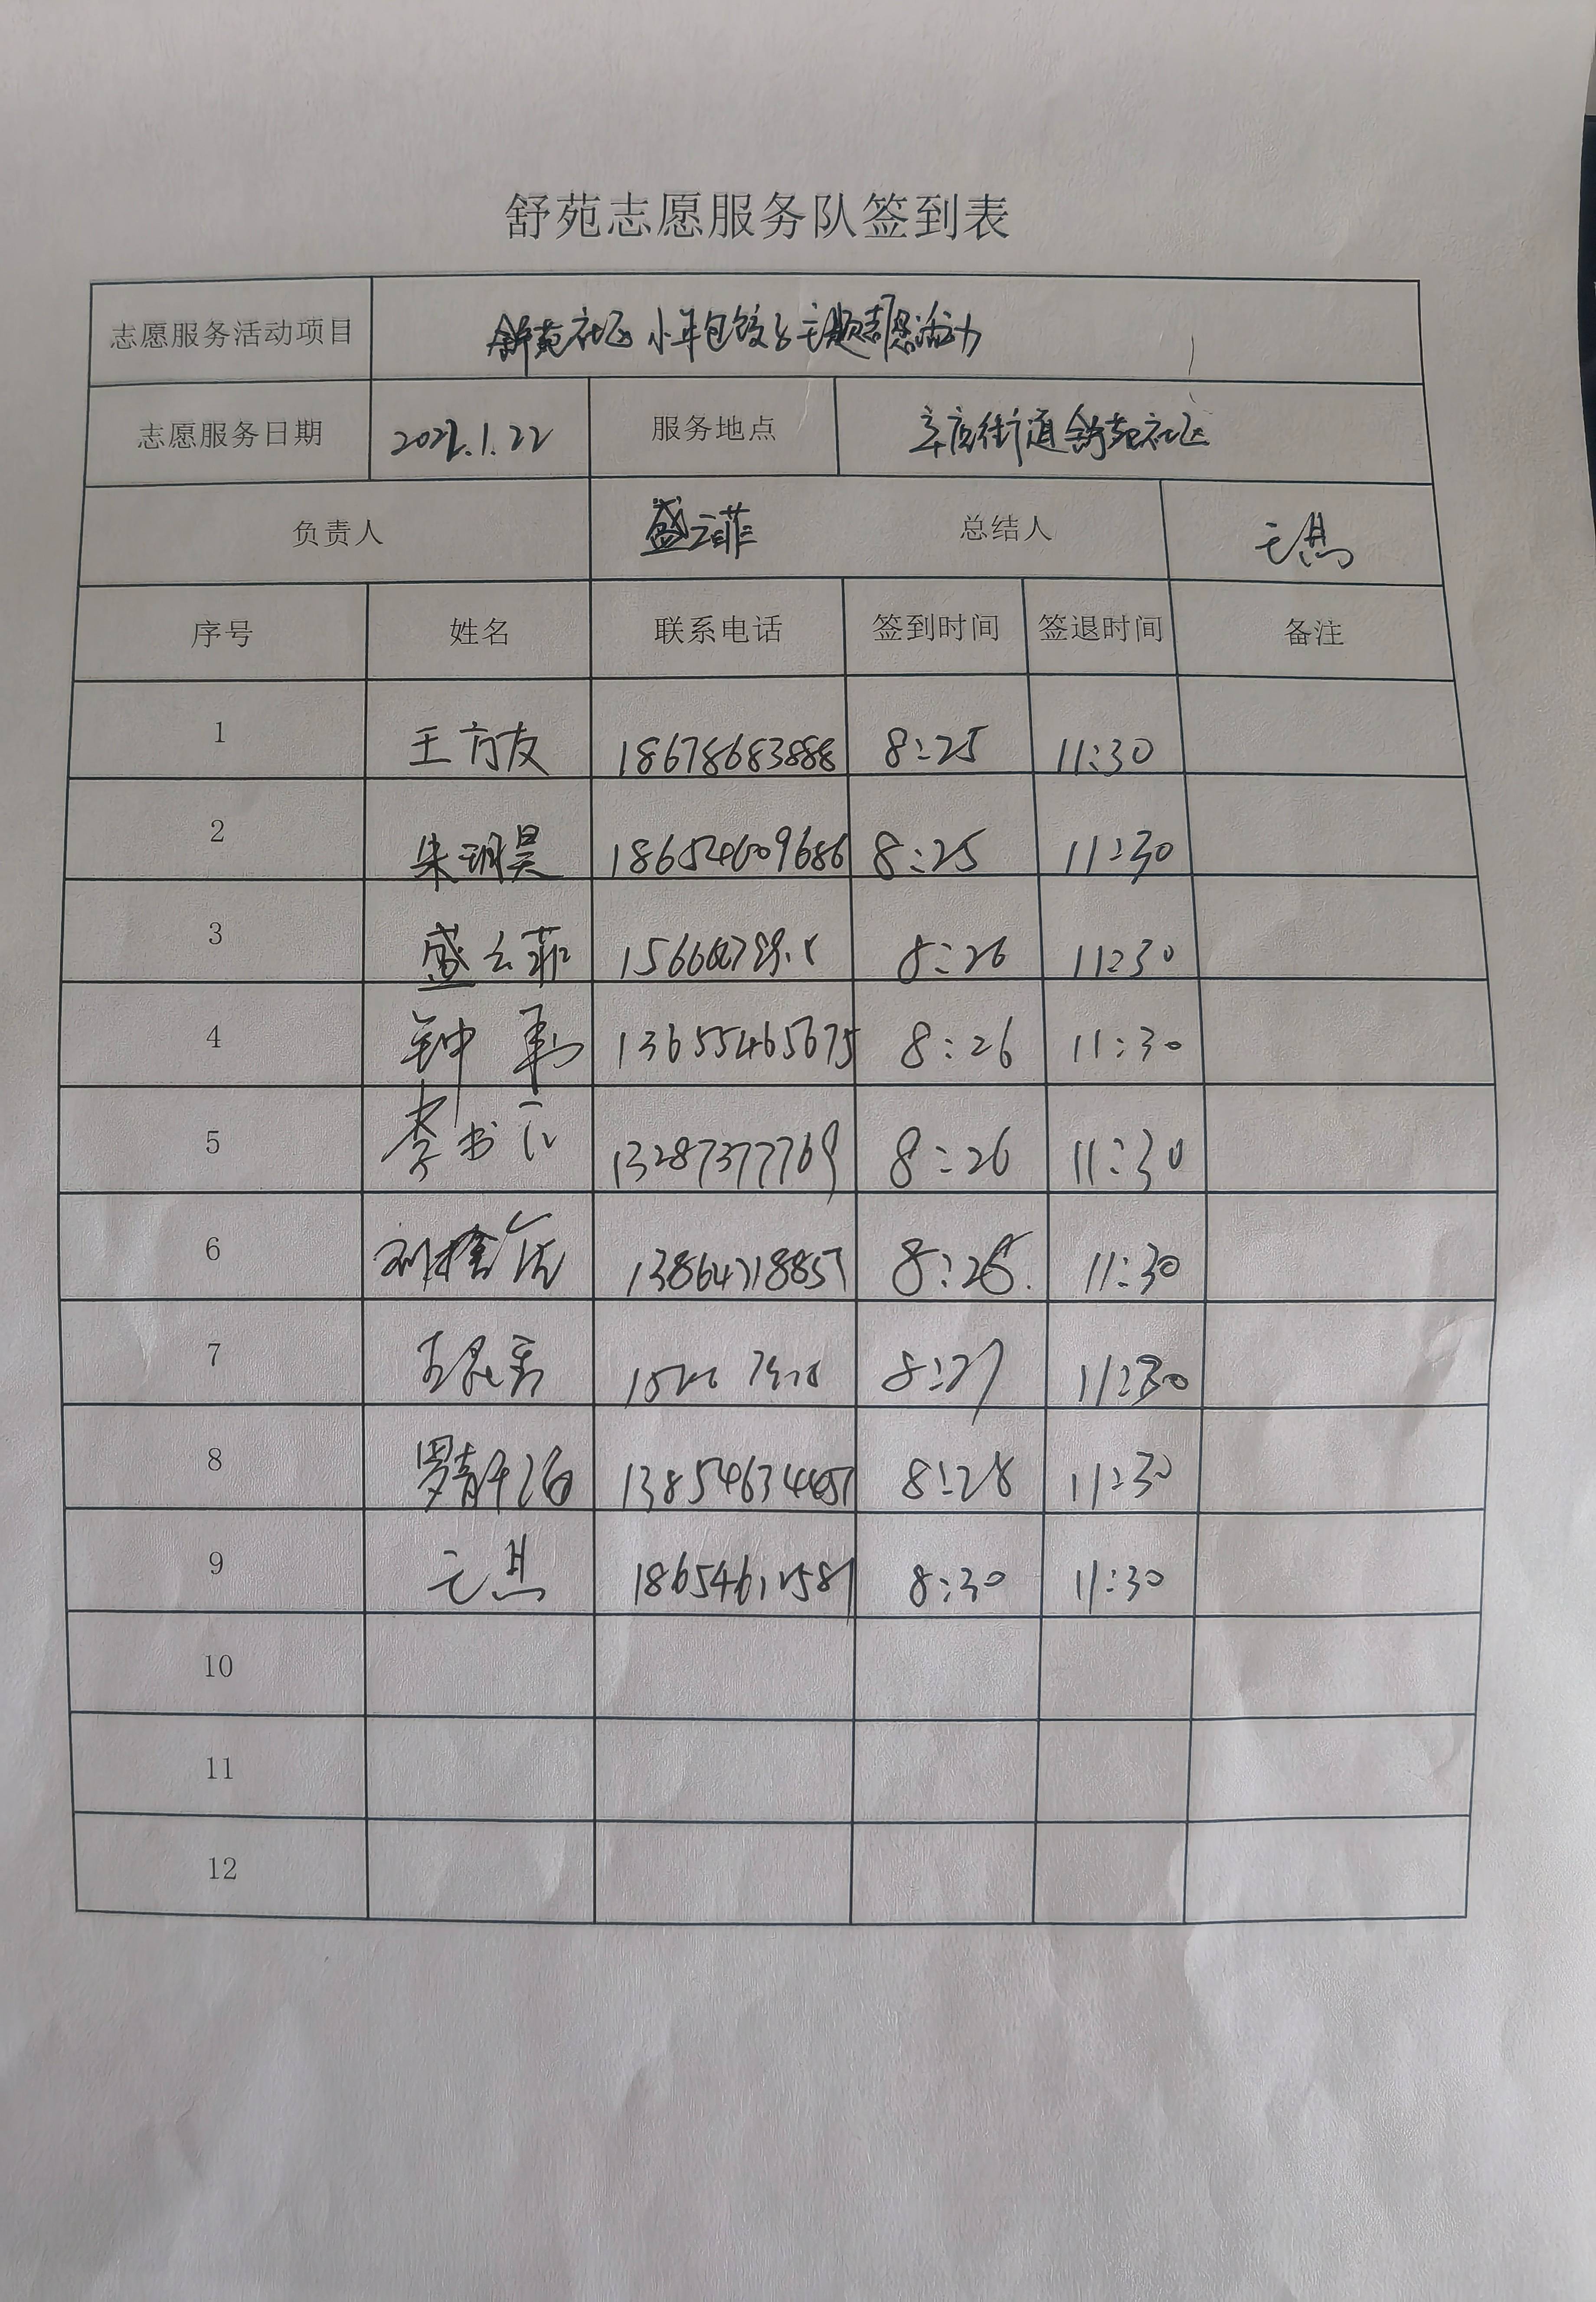 舒苑志愿服务队签到表
志愿服务活动项目 舒苑社区小年包饺子主题志愿活动
志愿服务日期 2022.1.22 服务地点 辛店街道舒苑社区
负责人 盛云菲 总结人
序号 姓名 联系电话 签到时间 签退时间 备注
1 王方友 18678683888 8:25 11:30
2 朱玥昊 18654609686 8:25 11:30
3 盛云菲 8:26 11:30
4 钟勇 13655465675 8:26 11:30
5 李书 13287377769 8:26 11:30
6 13864718857 8:26 11:30
7 8:27 11:30
8 罗静 8:28 11:30
9 8:30 11:30
10
11
12